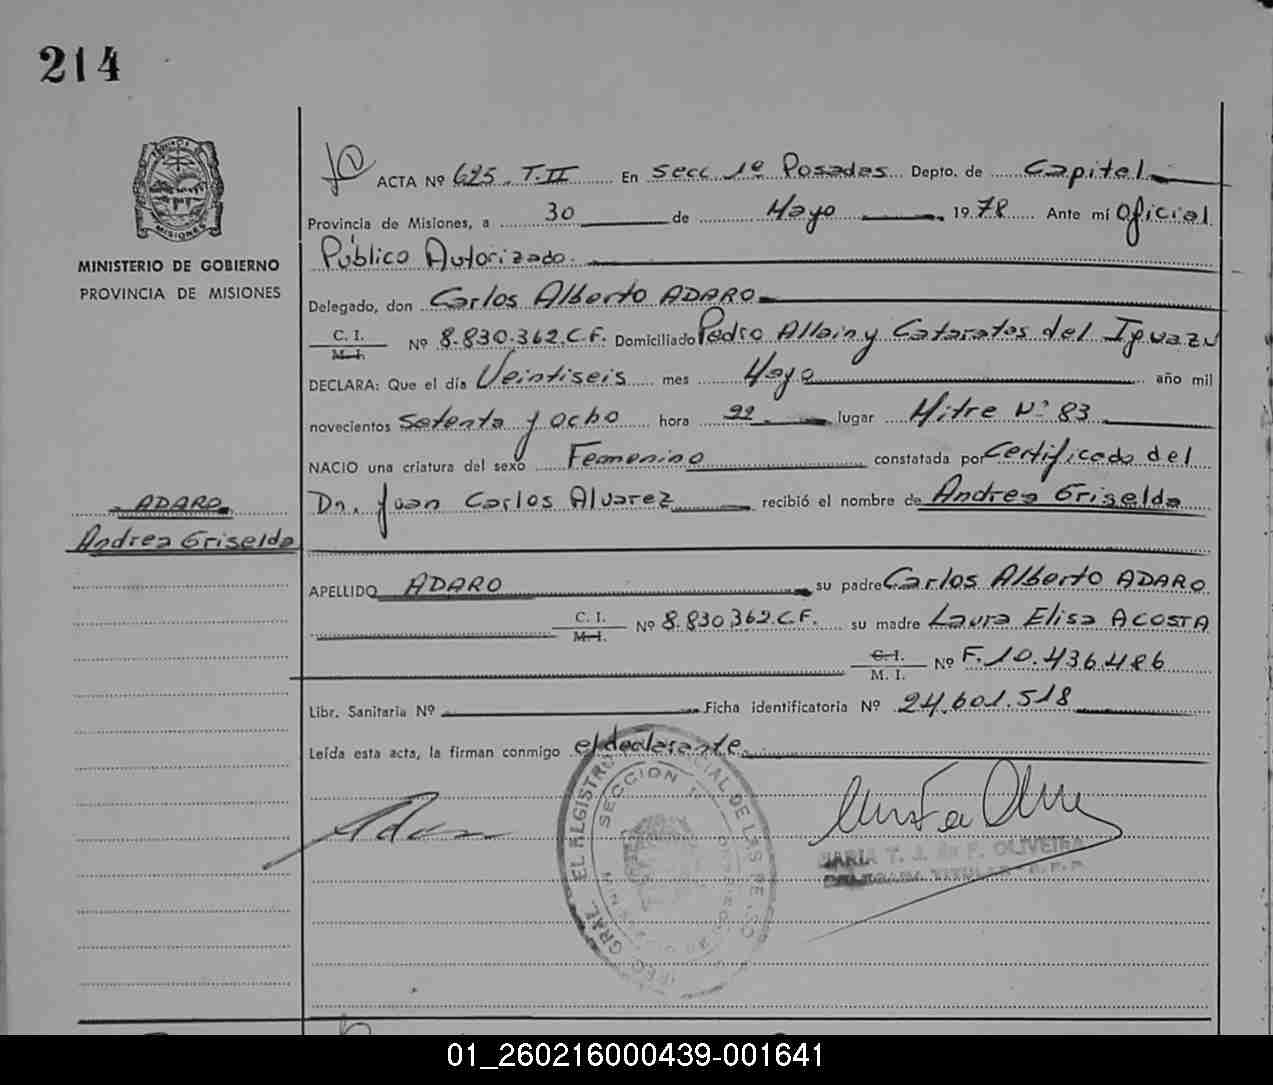 214
ACTA Nº 625. T.II En secc 1ª Posadas Depto. de Capital
Provincia de Misiones, a 30 de Mayo 1978 Ante mí Oficial
MINISTERIO DE GOBIERNO
PROVINCIA DE MISIONES
Público Autorizado.
Delegado, don Carlos Alberto ADARO
C. I.
M. I.
Nº 8.830.362.C.F. Domiciliado Pedro Allain y Cataratas del Iguazu
DECLARA: Que el día Veintiseis mes Mayo año mil
novecientos setenta y ocho hora 22 lugar Mitre Nº 83
NACIO una criatura del sexo Femenino constatada por Certificado del
Dr. Juan Carlos Alvarez recibió el nombre de Andrea Griselda
ADARO
Andrea Griselda
APELLIDO ADARO su padre Carlos Alberto ADARO
C. I.
M. I.
Nº 8.830.362.C.F. su madre Laura Elisa ACOSTA
C. I.
M. I.
Nº F.10.436.486
Libr. Sanitaria Nº Ficha identificatoria Nº 24.601.518
Leída esta acta, la firman conmigo el declarante
SECCION 1ª
MARIA T. J. de F. OLIVEIRA
01_260216000439-001641